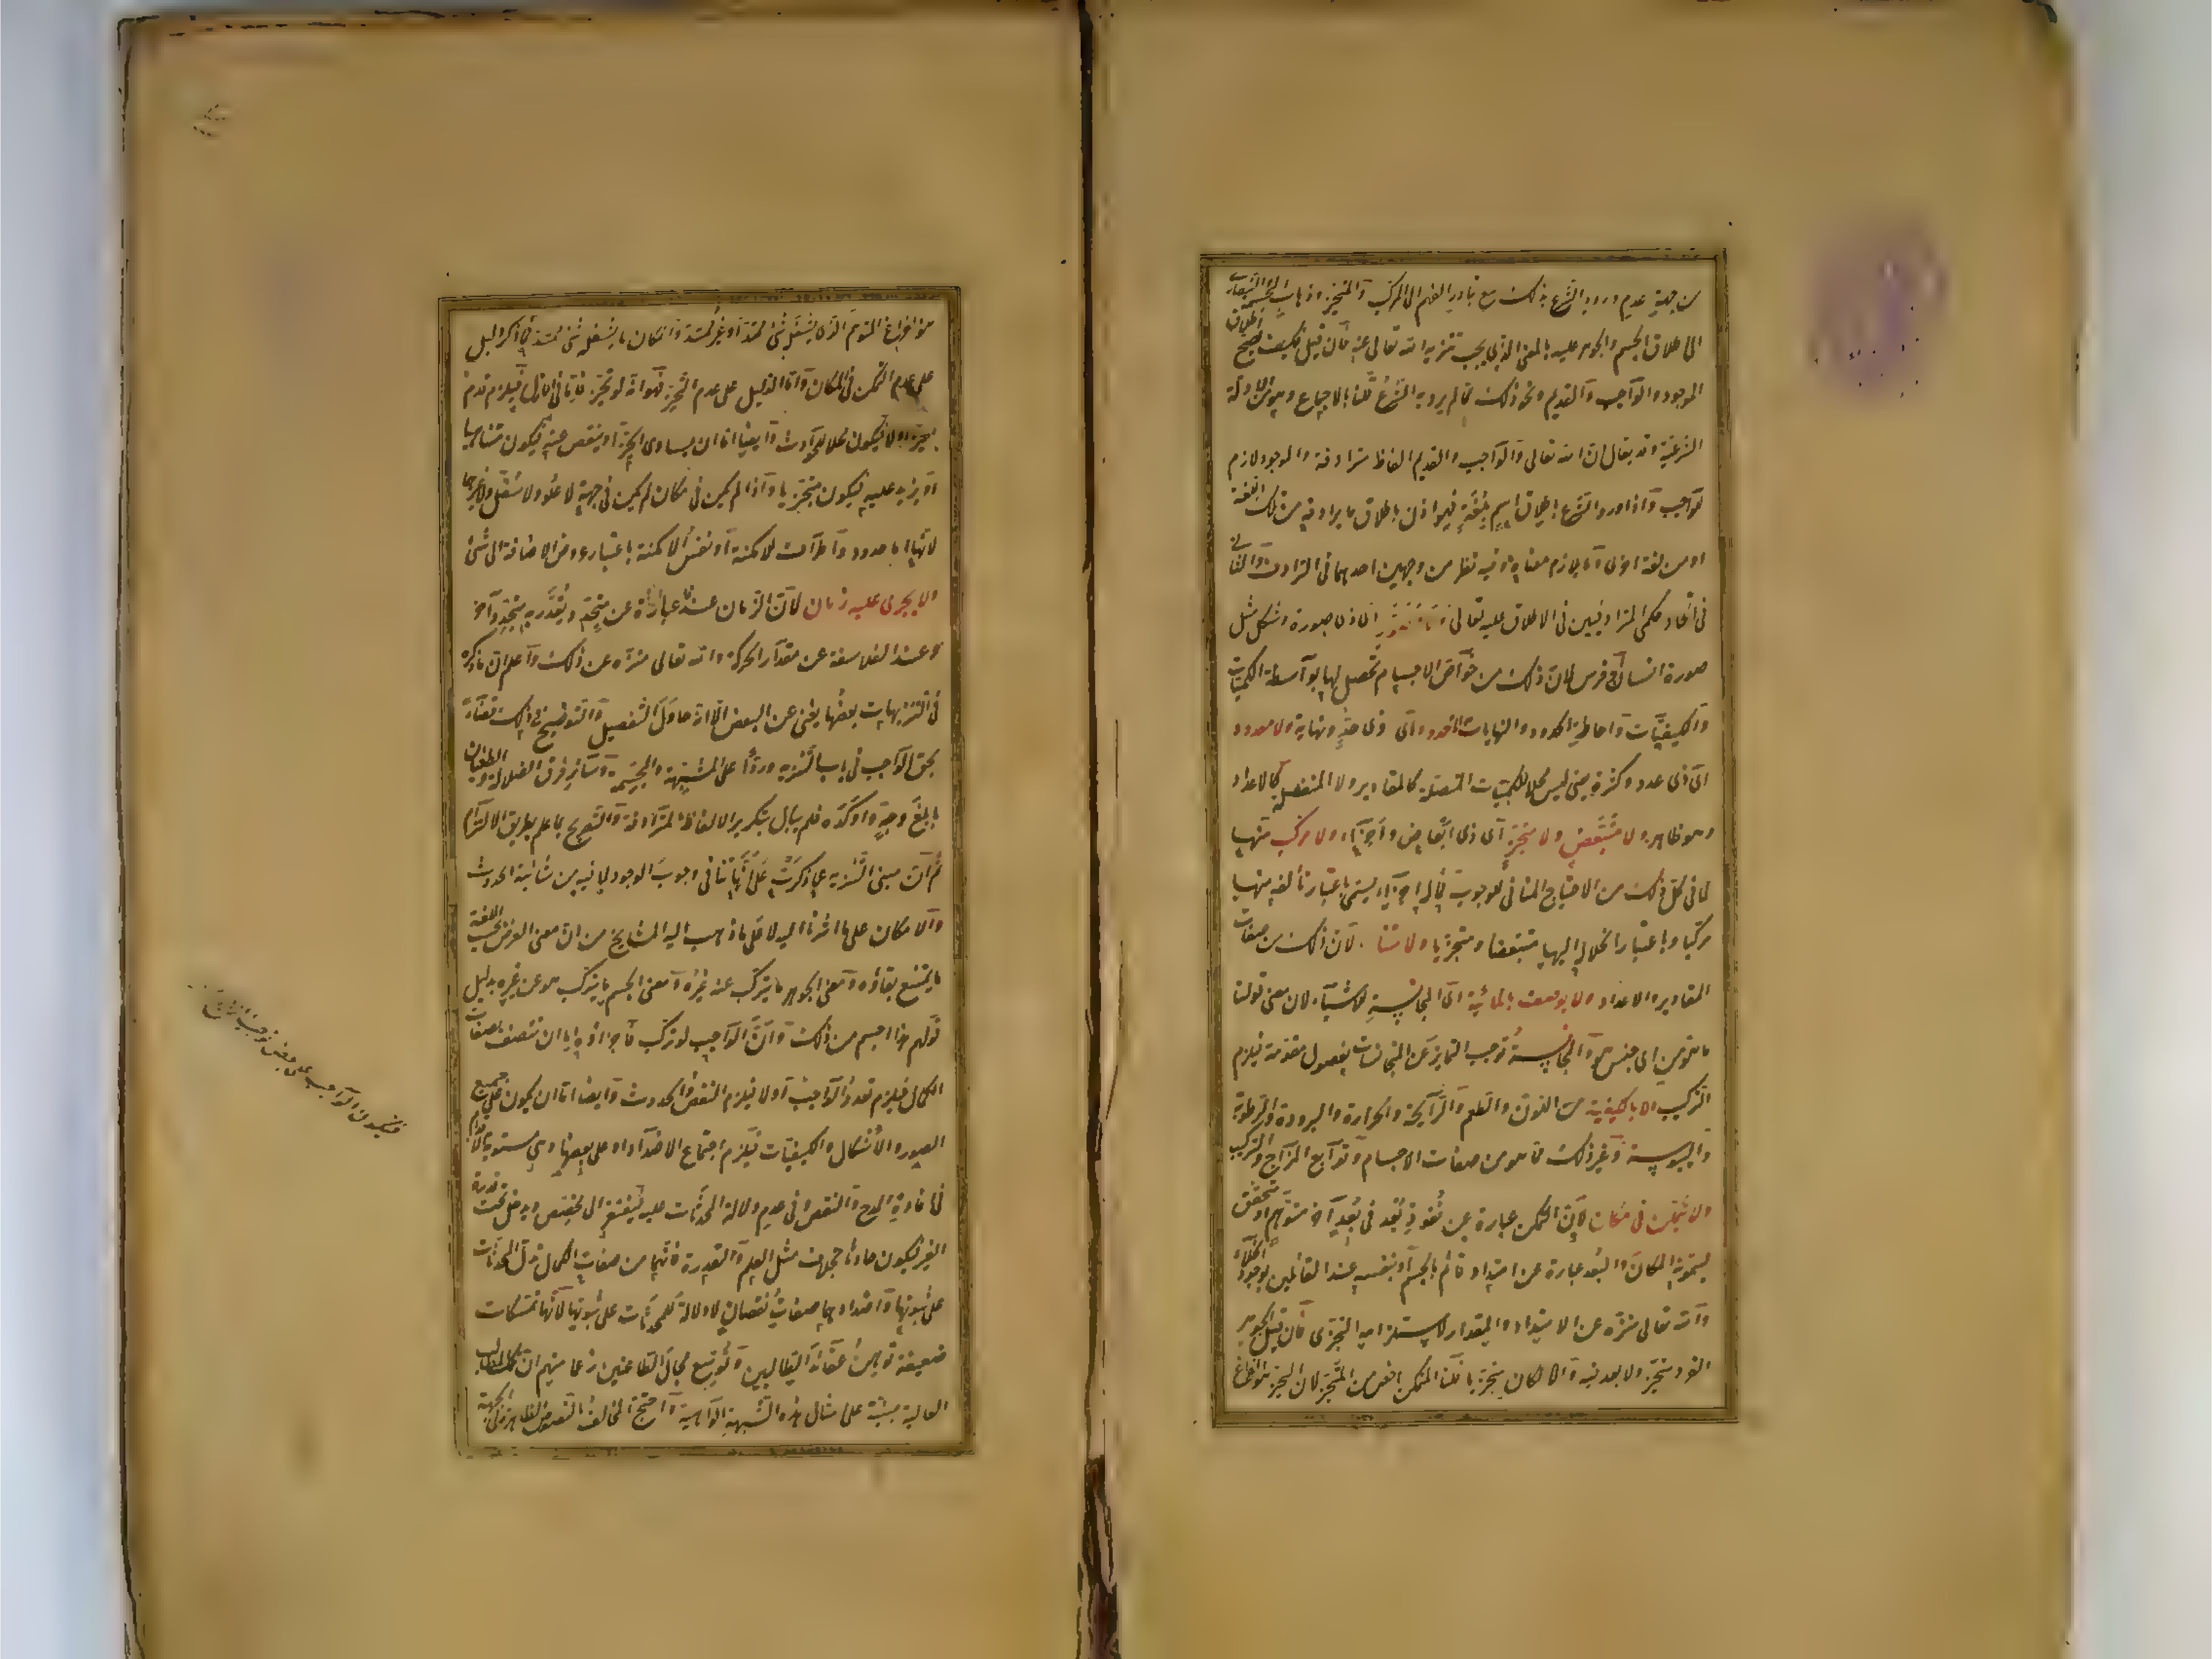 من جهة عدم ورود الشرع بذلك مع تبادر الفهم الى المركب والمتحيز وذهاب المجسمة والنصارى
الى اطلاق الجسم والجوهر عليه بالمعنى الذي يجب تنزيه الله تعالى عنه فان قيل فكيف صح اطلاق
الموجود والواجب والقديم ونحو ذلك مما لم يرد به الشرع قلنا بالاجماع وهو من الادلة
الشرعية وقد يقال ان الله تعالى والواجب والقديم الفاظ مترادفة والموجود لازم
للواجب واذا ورد الشرع باطلاق اسم بلغة فهو اذن باطلاق ما يرادفه من تلك اللغة
او من لغة اخرى وما يلازم معناه وفيه نظر من وجهين احدهما في الترادف والثاني
في اتحاد حكمي المترادفين في الاطلاق عليه تعالى ولا مصور اي ذي صورة وشكل مثل
صورة انسان او فرس لان ذلك من خواص الاجسام تحصل لها بواسطة الكميات
والكيفيات واحاطة الحدود والنهايات ولا محدود اي ذي حد ونهاية ولا معدود
اي ذي عدد وكثرة يعني ليس محلا للكميات المتصلة كالمقادير ولا المنفصلة كالاعداد
وهو ظاهر ولا متبعض ولا متجز اي ذي ابعاض واجزاء ولا مركب منها
لما في كل ذلك من الاحتياج المنافي للوجوب فما له اجزاء يسمى باعتبار تألفه منها
مركبا وباعتبار انحلاله اليها متبعضا ومتجزيا ولا متناه لان ذلك من صفات
المقادير والاعداد ولا يوصف بالمائية اي المجانسة للاشياء لان معنى قولنا
ما هو من اي جنس هو والمجانسة توجب التمايز عن المتجانسات بفصول مقومة فيلزم
التركيب ولا بالكيفية من اللون والطعم والرائحة والحرارة والبرودة والرطوبة
واليبوسة وغير ذلك مما هو من صفات الاجسام وتوابع المزاج والتركيب
ولا يتمكن في مكان لان التمكن عبارة عن نفوذ بعد في بعد آخر متوهم او متحقق
يسمونه المكان والبعد عبارة عن امتداد قائم بالجسم او بنفسه عند القائلين بوجود الخلاء
والله تعالى منزه عن الامتداد والمقدار لاستلزامه التجزي فان قيل الجوهر
الفرد متحيز ولا بعد فيه والا لكان متجزيا قلنا المتمكن اخص من المتحيز لان الحيز هو الفراغ
هو الفراغ المتوهم الذي يشغله شئ ممتد او غير ممتد والمكان ما يشغله شئ ممتد فما ذكر دليل
على عدم التمكن في المكان واما الدليل على عدم التحيز فهو انه لو تحيز فاما في الازل فيلزم قدم
الحيز او لا فيكون محلا للحوادث وايضا اما ان يساوي الحيز او ينقص عنه فيكون متناهيا
او يزيد عليه فيكون متجزيا واذا لم يكن في مكان لم يكن في جهة لا علو ولا سفل ولا غيرهما
لانها اما حدود واطراف للامكنة او نفس الامكنة باعتبار عروض الاضافة الى شئ
ولا يجري عليه زمان لان الزمان عندنا عبارة عن متجدد يقدر به متجدد آخر
وعند الفلاسفة عن مقدار الحركة والله تعالى منزه عن ذلك واعلم ان ما ذكره
في التنزيهات بعضها يغني عن البعض الا انه حاول التفصيل والتوضيح في ذلك قضاء
لحق الواجب في باب التنزيه وردا على المشبهة والمجسمة وسائر فرق الضلالة والطغيان
بابلغ وجه واوكده فلم يبال بتكرير الالفاظ المترادفة والتصريح بما علم بطريق الالتزام
ثم ان مبنى التنزيه عما ذكرت على انها تنافي وجوب الوجود لما فيه من شائبة الحدوث
والامكان على ما اشرنا اليه لا على ما ذهب اليه المشايخ من ان معنى العرض بحسب اللغة
ما يمتنع بقاؤه ومعنى الجوهر ما يتركب عنه غيره ومعنى الجسم ما يتركب هو عن غيره بدليل
قولهم هذا اجسم من ذلك وان الواجب لو تركب فاجزاؤه اما ان تتصف بصفات
الكمال فيلزم تعدد الواجب او لا فيلزم النقص والحدوث وايضا اما ان يكون على جميع
الصور والاشكال والكيفيات فيلزم اجتماع الاضداد او على بعضها وهي مستوية الاقدام
في افادة المدح والنقص وفي عدم دلالة المحدثات عليه فيفتقر الى مخصص ويدخل تحت قدرة
الغير فيكون حادثا بخلاف مثل العلم والقدرة فانها من صفات الكمال تدل المحدثات
على ثبوتها واضدادها صفات نقصان لا دلالة للمحدثات على ثبوتها لانها تمسكات
ضعيفة توهن عقائد الطالبين وتوسع مجال الطاعنين زعما منهم ان تلك المطالب
العالية مبنية على مثال هذه الشبهة الواهية واحتج المخالف بالنصوص الظاهرة في الجهة